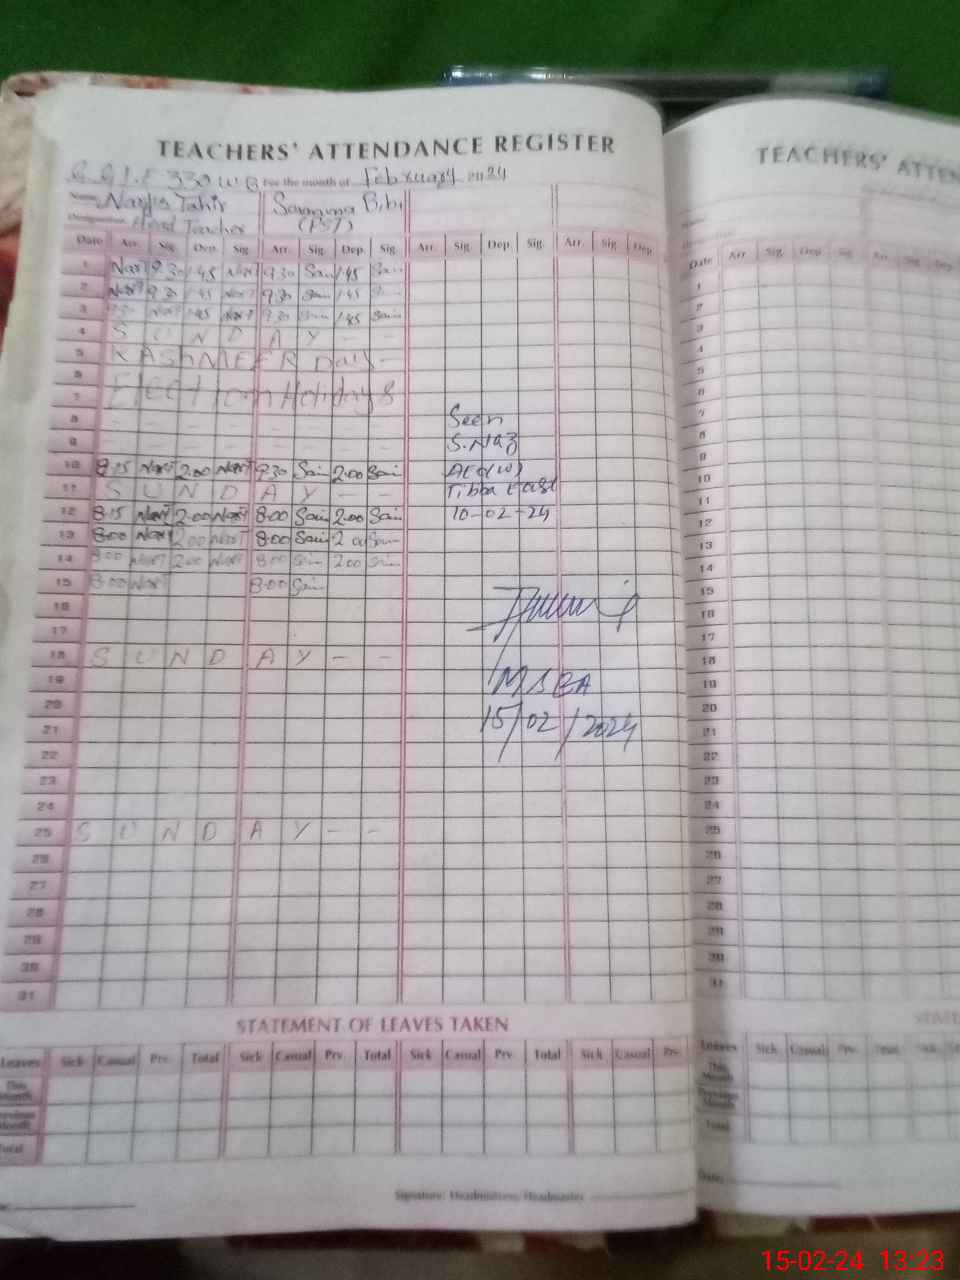 TEACHERS' ATTENDANCE REGISTER
330 W.B For the month of February 2024
Name Tahir Bibi
Designation Head Teacher (PST)
Date Arr. Sig. Dep. Sig. Arr. Sig. Dep. Sig. Arr. Sig. Dep. Sig. Arr. Sig. Dep.
1 9.30 1.45 9.30 1.45
2 9.30 1.45 9.30 1.45
3 1.45 9.30 1.45
4 S U N D A Y - -
5 KASHMEER Day -
6
7 Election Holidays
8 - - - - - - - - Seen
9 - - - - - - - - S.Naz
10 8.15 2.00 9.30 2.00 AEO(W)
11 S U N D A Y - - Tibba East
12 8.15 2.00 8.00 2.00 10-02-24
13 8.00 2.00 8.00 2.00
14 8.00 2.00 8.00 2.00
15 8.00 8.00
16
17
18 S U N D A Y - -
19 MSEA
20
21 15/02/2024
22
23
24
25 S U N D A Y - -
26
27
28
29
30
31
STATEMENT OF LEAVES TAKEN
Leaves Sick Casual Prv. Total Sick Casual Prv. Total Sick Casual Prv. Total Sick Casual Prv.
This Month
Previous Month
Total
Signature: Headmistress/Headmaster
TEACHERS' ATTEN
Date Arr Sig. Dep Sig. Arr. Sig. Dep
1
2
3
4
5
6
7
8
9
10
11
12
13
14
15
16
17
18
19
20
21
22
23
24
25
26
27
28
29
30
31
Leaves Sick Casual Prv. Total Sick
This Month
Previous Month
Total
Date:
15-02-24 13:23